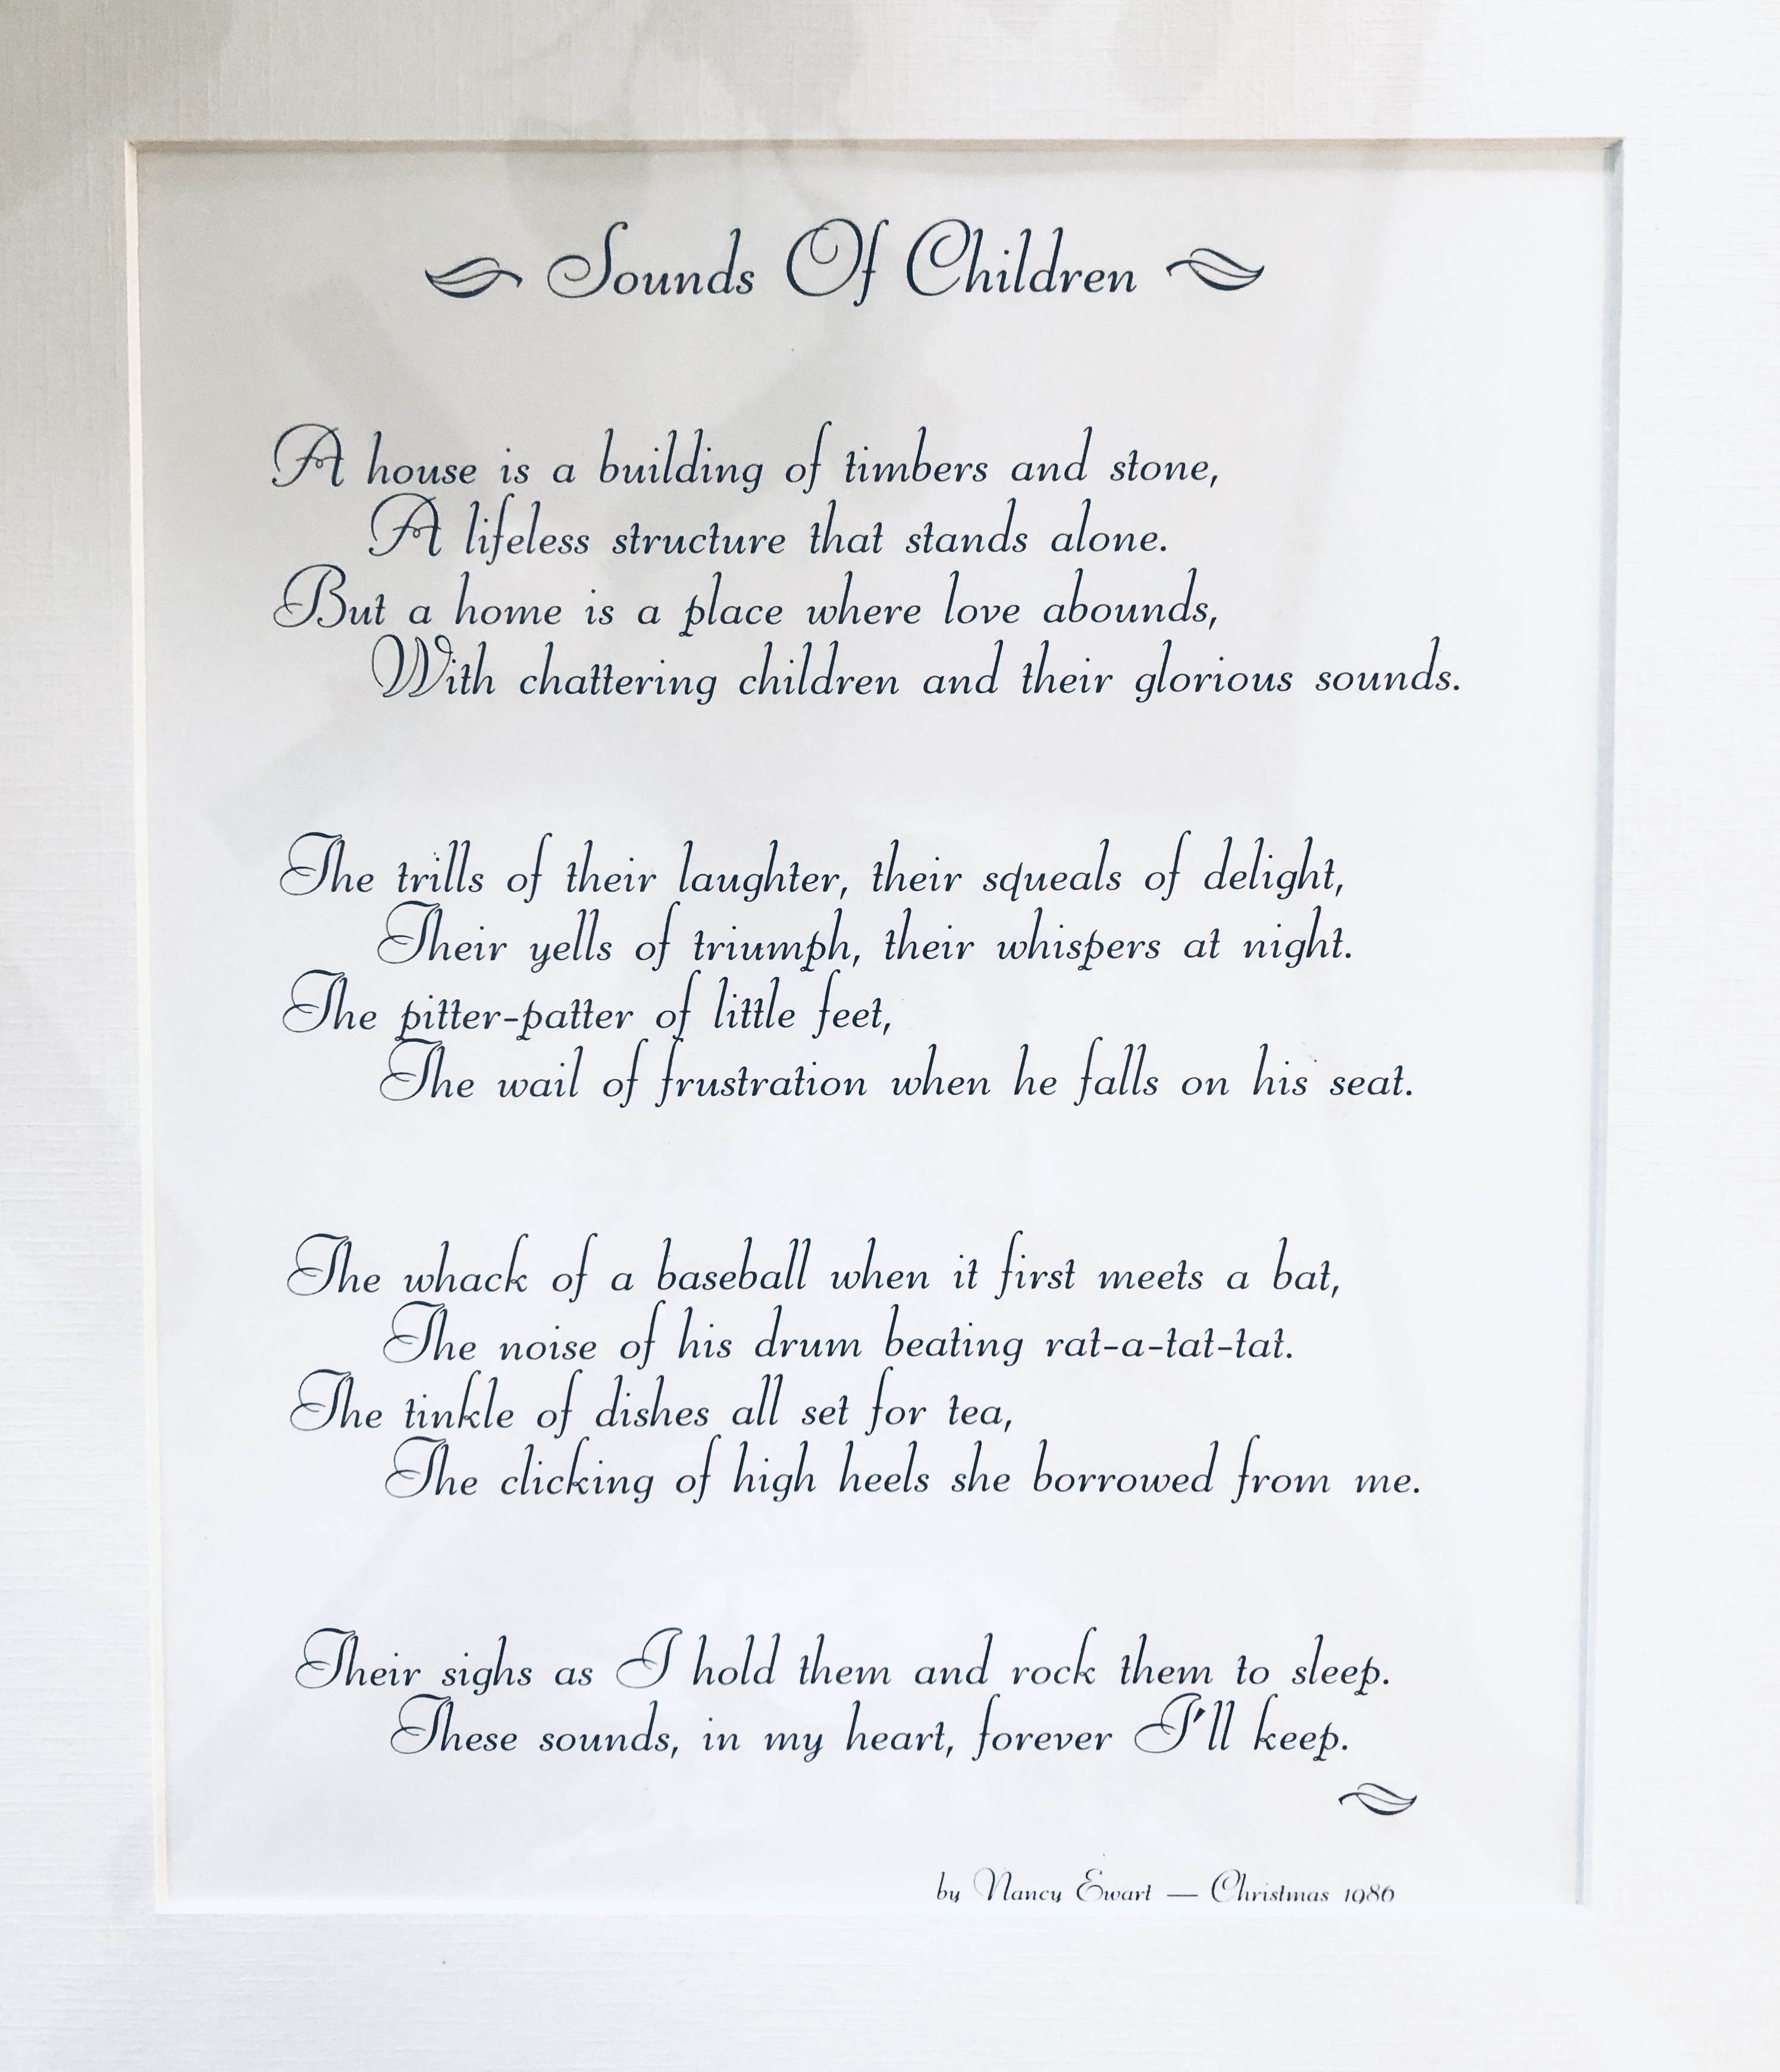 Sounds Of Children
A house is a building of timbers and stone,
A lifeless structure that stands alone.
But a home is a place where love abounds,
With chattering children and their glorious sounds.
The trills of their laughter, their squeals of delight,
Their yells of triumph, their whispers at night.
The pitter-patter of little feet,
The wail of frustration when he falls on his seat.
The whack of a baseball when it first meets a bat,
The noise of his drum beating rat-a-tat-tat.
The tinkle of dishes all set for tea,
The clicking of high heels she borrowed from me.
Their sighs as I hold them and rock them to sleep.
These sounds, in my heart, forever I'll keep.
by Nancy Ewart — Christmas 1986